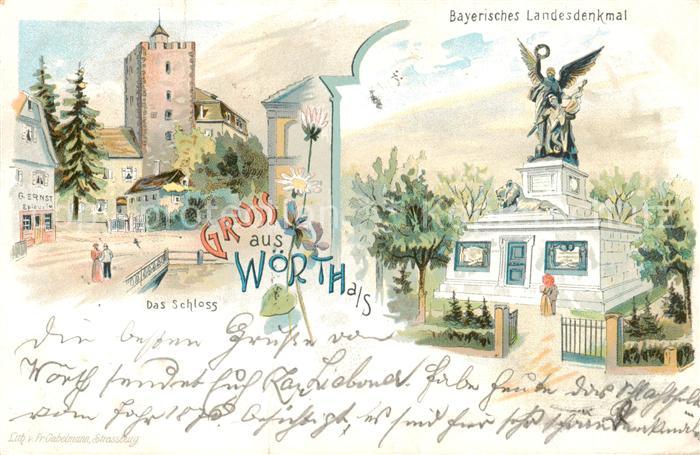 Bayerisches Landesdenkmal
G. ERNST
GRUSS
aus
WÖRTH a/S
Das Schloss
Die besten Grüße von
Wörth sendet Euch habe heute das
vom Jahr besichtigt, es sind hier sehr schöne Denkmäler
Lith. v. Fr. Gabelmann, Strassburg